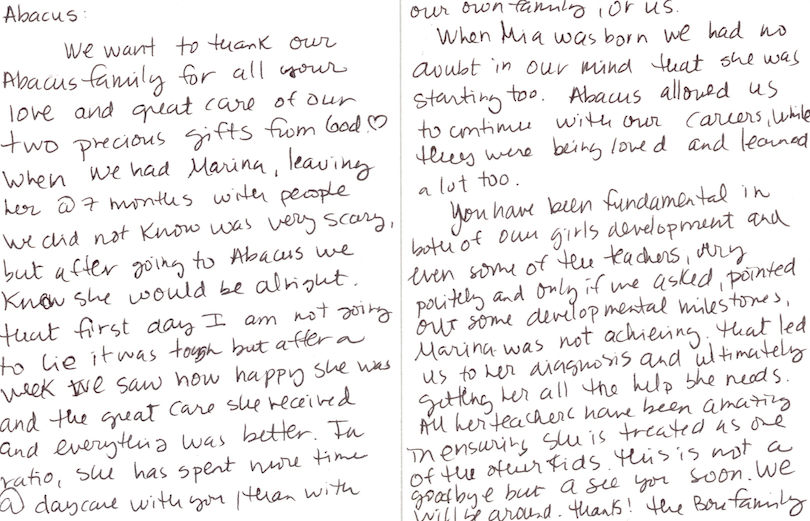 Abacus:
We want to thank our
Abacus family for all your
love and great care of our
two precious gifts from God ♡
When we had Marina, leaving
her @ 7 months with people
we did not know was very scary,
but after going to Abacus we
knew she would be alright.
that first day I am not going
to lie it was tough but after a
week we saw how happy she was
and the great care she received
and everything was better. In
ratio, she has spent more time
@ daycare with you, than with
our own family, or us.
When Mia was born we had no
doubt in our mind that she was
starting too. Abacus allowed us
to continue with our careers, while
they were being loved and learned
a lot too.
You have been fundamental in
both of our girls development and
even some of the teachers, very
politely and only if we asked, pointed
out some developmental milestones,
Marina was not achieving. that led
us to her diagnosis and ultimately
getting her all the help she needs.
All her teachers have been amazing
in ensuring she is treated as one
of the other kids. this is not a
goodbye but a see you soon. We
will be around. thanks! the family